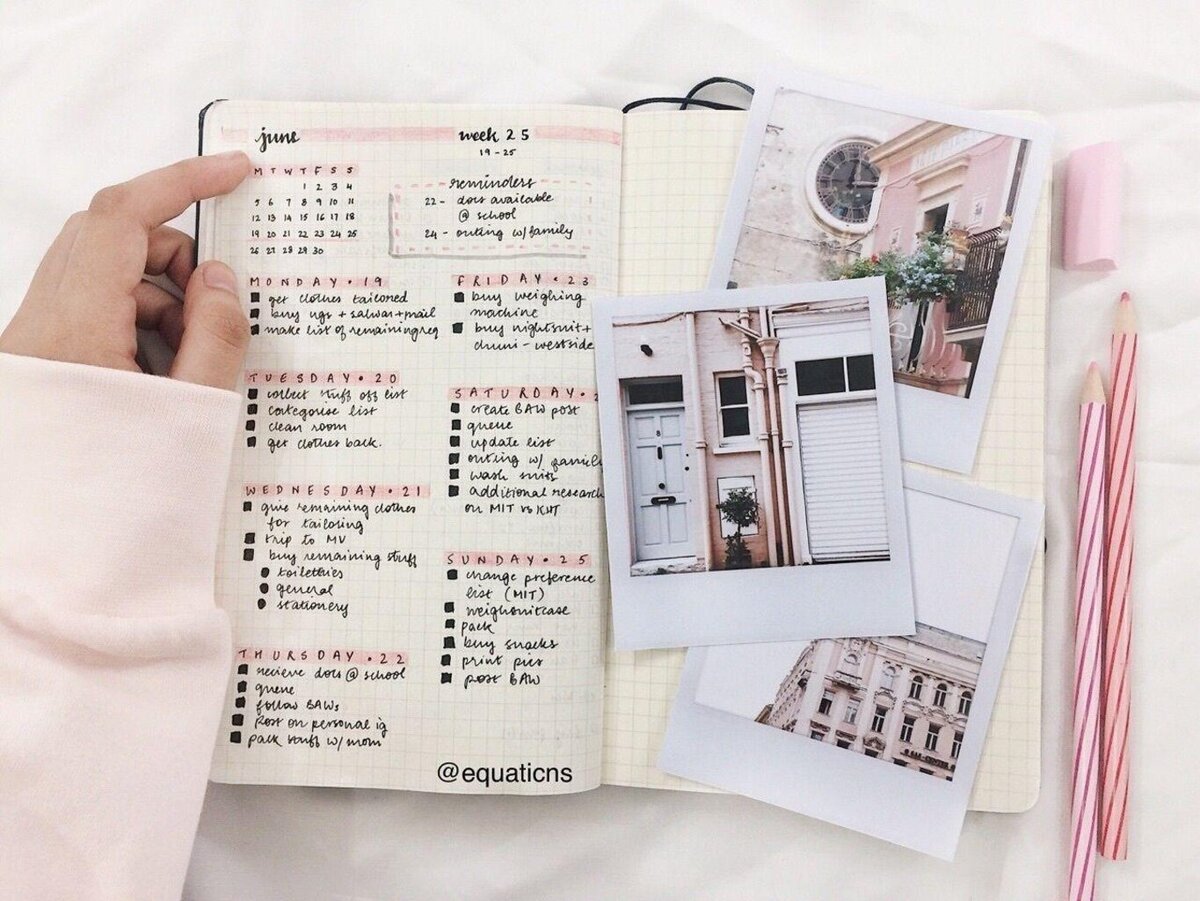 june
week 25
19-25
M T W T F S S
1 2 3 4
5 6 7 8 9 10 11
12 13 14 15 16 17 18
19 20 21 22 23 24 25
26 27 28 29 30
reminders
22- docs available
@ school
24- outing w/family
MONDAY • 19
get clothes tailored
buy ngs + salwar + mail
make list of remaining req
TUESDAY • 20
collect stuff off list
categorise list
clean room
get clothes back.
WEDNESDAY • 21
give remaining clothes
for tailoring
trip to MV
buy remaining stuff
toiletries
general
stationery
THURSDAY • 22
recieve docs @ school
queue
follow BAWs
Post on personal ig
pack stuff w/ mom
FRIDAY • 23
buy weighing
machine
buy nightsuit +
chuni - westside
SATURDAY •
create BAW post
queue
update list
outing w/ family
wash suits
additional research
on MIT vs KIIT
SUNDAY • 25
change preference
list (MIT)
weigh suitcase
pack
buy snacks
print pics
post BAW
@equaticns
8